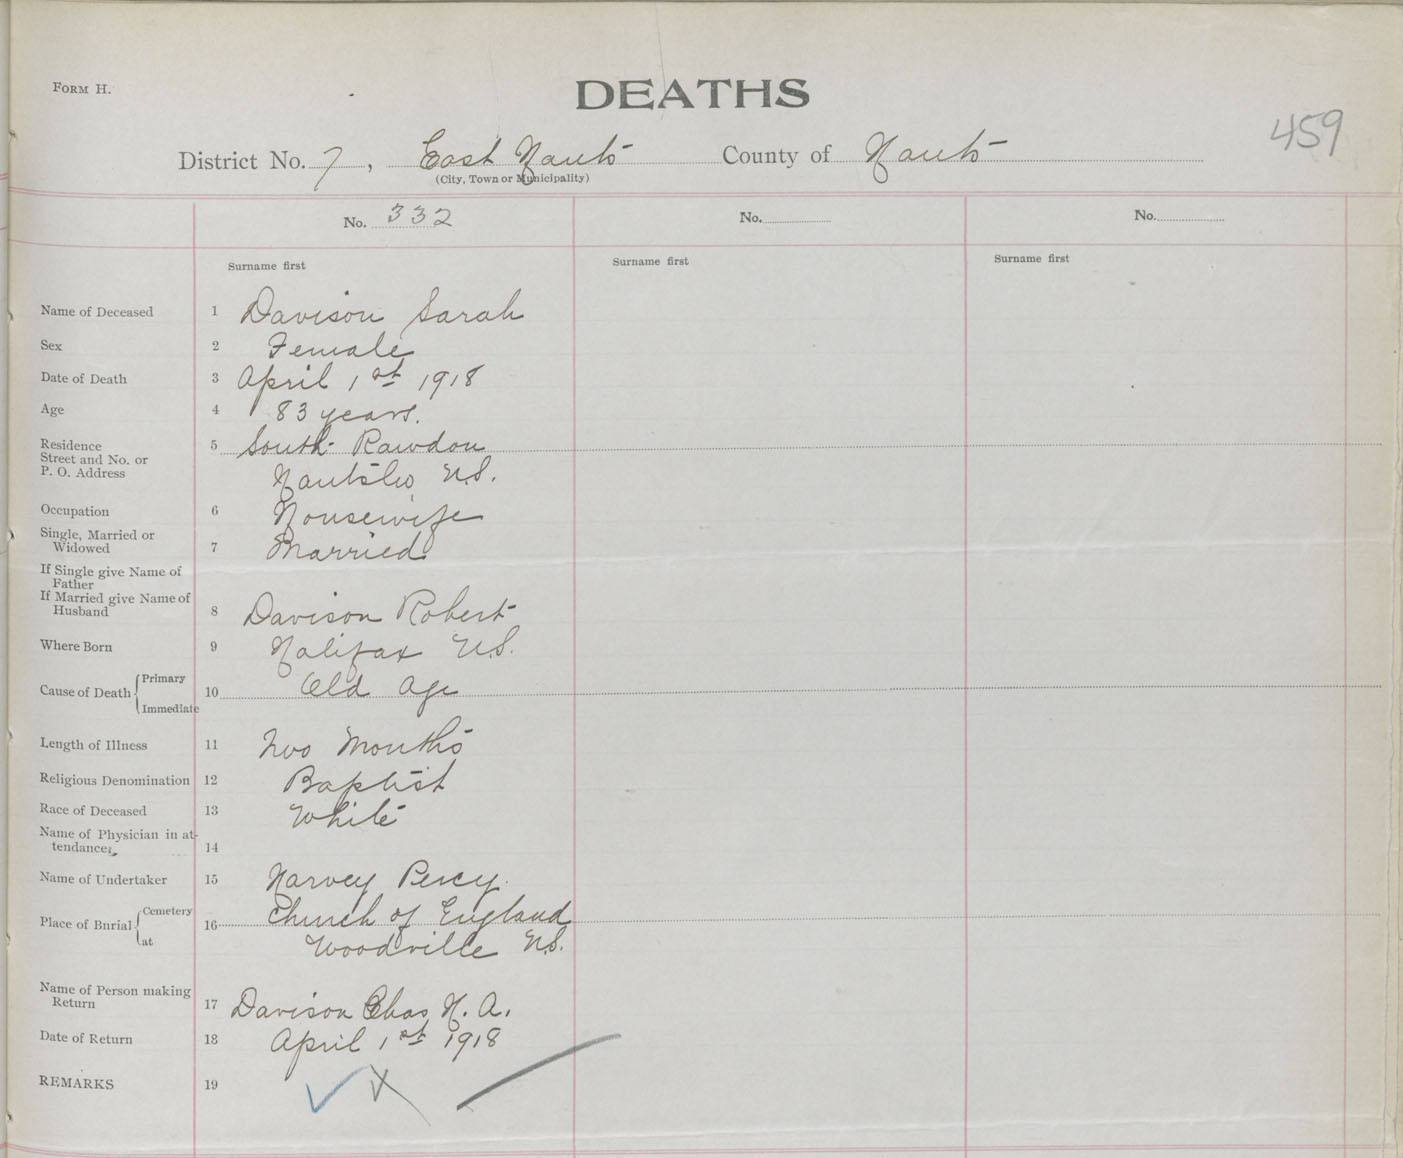 FORM H.
DEATHS
459
District No. 7, East Hants County of Hants
(City, Town or Municipality)
No. 332 No. No.
Surname first Surname first Surname first
Name of Deceased 1 Davison Sarah
Sex 2 Female
Date of Death 3 April 1st 1918
Age 4 83 years.
Residence 5 South Rawdon
Street and No. or
P. O. Address Hants Co N.S.
Occupation 6 Housewife
Single, Married or
Widowed 7 Married
If Single give Name of
Father
If Married give Name of
Husband 8 Davison Robert
Where Born 9 Halifax N.S.
Cause of Death { Primary
10 Old Age
Immediate
Length of Illness 11 Two Months
Religious Denomination 12 Baptist
Race of Deceased 13 White
Name of Physician in at-
tendance 14
Name of Undertaker 15 Harvey Percy.
Place of Burial { Cemetery 16 Church of England
at Woodville N.S.
Name of Person making
Return 17 Davison Chas H. A.
Date of Return 18 April 1st 1918
REMARKS 19